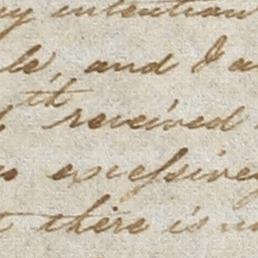 my intention
and I a
th received
excessively
there is